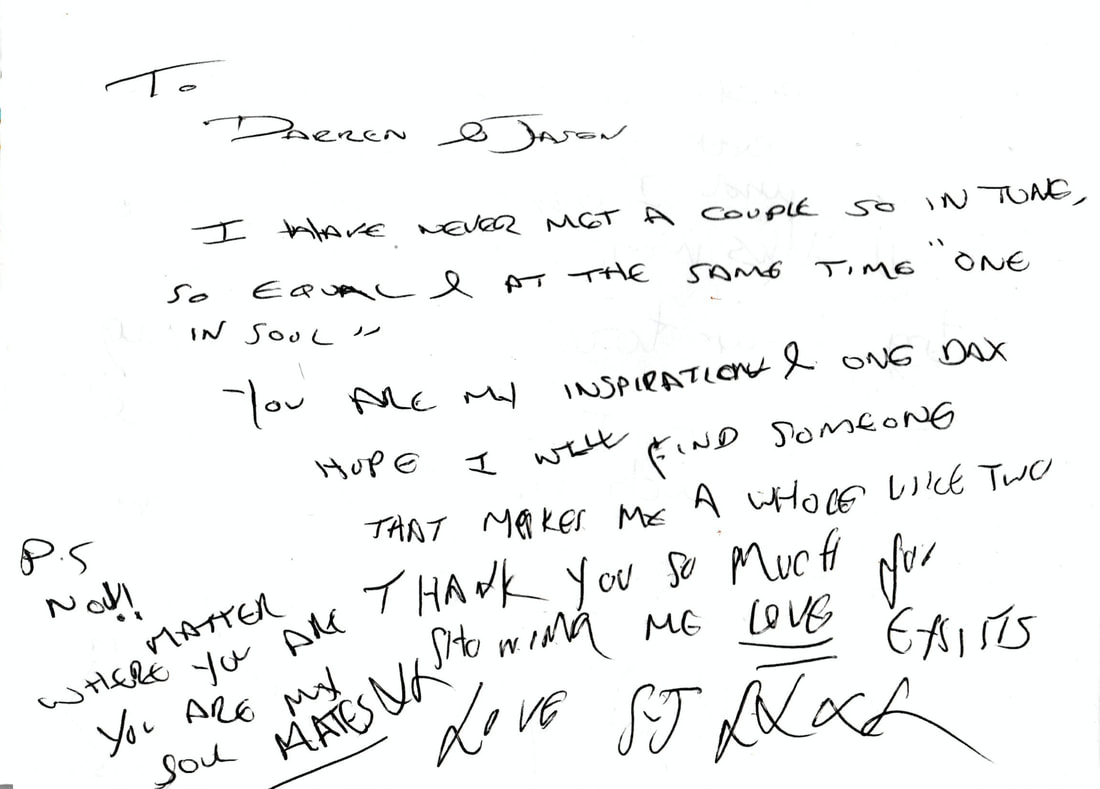 To
Darren & Jason
I HAVE NEVER MET A COUPLE SO IN TUNE,
SO EQUAL & AT THE SAME TIME "ONE
IN SOUL"
YOU ARE MY INSPIRATION & ONE DAY
HOPE I WILL FIND SOMEONE
THAT MAKES ME A WHOLE LIKE TWO
THANK YOU SO MUCH for
SHOWING ME LOVE EXSISTS
LOVE SJ
P.S
NO!!
MATTER
WHERE YOU ARE
YOU ARE MY
SOUL MATES